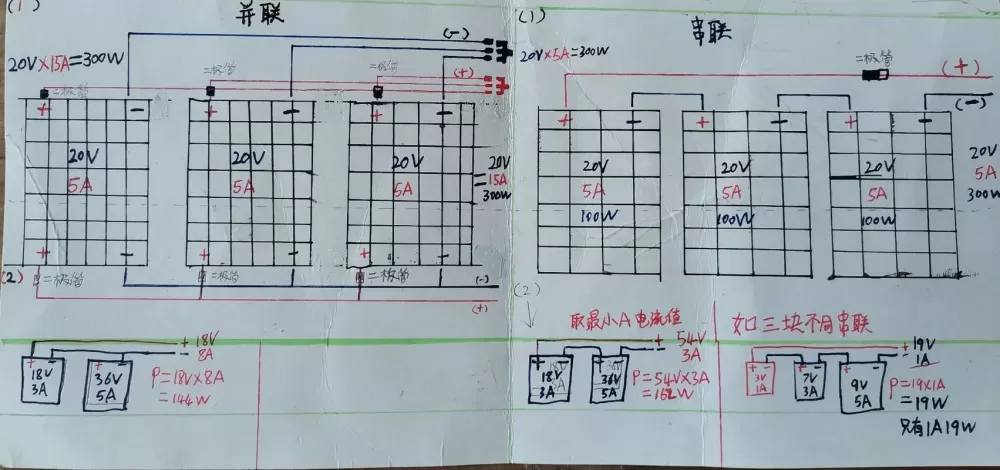 (1)
并联
20V×15A=300W
(-)
二极管
二极管
二极管
(+)
+ -
+ -
+ -
20V
5A
20V
5A
20V
5A
20V
15A
300W
+ -
+ -
+ -
(2)
二极管
二极管
二极管
(-)
(+)
+ 18V
- 8A
+ -
18V
3A
+ -
36V
5A
P=18V×8A
=144W
(1)
串联
20V×5A=300W
二极管
(+)
(-)
+ -
+ -
+ -
20V
5A
100W
20V
5A
100W
20V
5A
100W
20V
5A
300W
(2)
取最小A电流值
+ 54V
- 3A
+ -
18V
3A
+ -
36V
5A
P=54V×3A
=162W
如三块不同串联
+ 19V
- 1A
+ -
3V
1A
+ -
7V
3A
+ -
9V
5A
P=19×1A
=19W
只有1A19W